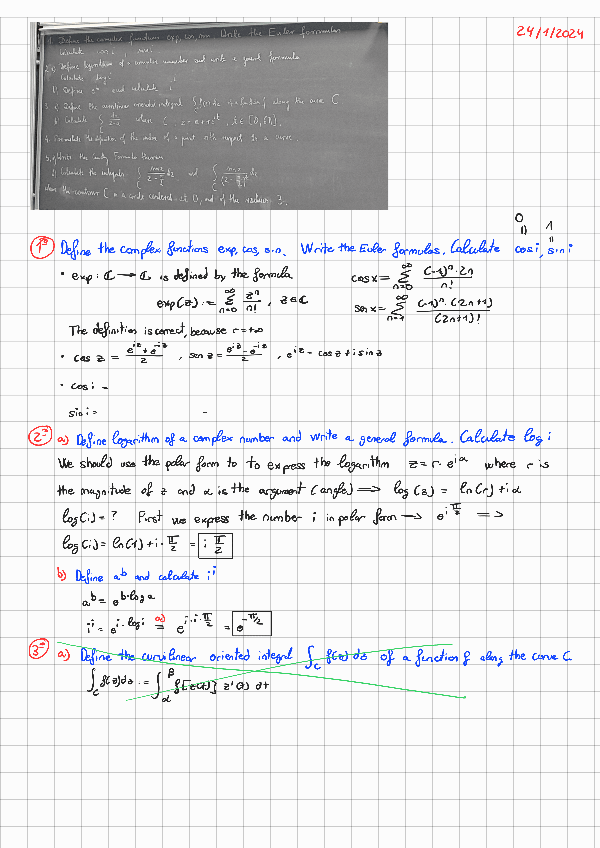 24/1/2024
1. Define the complex functions exp, cos, sin. Write the Euler formulas
Calculate cos i sin i
2. a) Define logarithm of a complex number and write a general formula
Calculate log i
b) Define a^b and calculate i^i
3. a) Define the curvilinear oriented integral ∫_C f(z) dz of a function f along the curve C
b) Calculate where C:
4. Formulate the definition of the index of a point with respect to a curve
5. a) Write the Cauchy Formula theorem
b) Calculate the integrals and
where the contour C is a circle centered at 0, and of the radius 3.
0 1
1º Define the complex functions exp, cos, sin. Write the Euler formulas. Calculate cos i, sin i
• exp: ℂ → ℂ is defined by the formula cos x = ∑_{n=0}^{∞} (-1)^n · 2n / n!
exp(z) := ∑_{n=0}^{∞} z^n / n! , z ∈ ℂ sen x = ∑_{n=1}^{∞} (-1)^n · (2n+1) / (2n+1)!
The definition is correct, because r = +∞
• cos z = (e^{iz} + e^{-iz}) / 2 , sen z = (e^{iz} - e^{-iz}) / 2 , e^{iz} = cos z + i sin z
• cos i =
sin i =
2º a) Define logarithm of a complex number and write a general formula. Calculate log i
We should use the polar form to to express the logarithm z = r · e^{iα} where r is
the magnitude of z and α is the argument (angle) ⟹ log(z) = ln(r) + iα
log(i) = ? First we express the number i in polar form → e^{i π/2} ⟹
log(i) = ln(1) + i · π/2 = i π/2
b) Define a^b and calculate i^i
a^b = e^{b·log a}
i^i = e^{i · log i} =^{a)} e^{i·i·π/2} = e^{-π/2}
3º a) Define the curvilinear oriented integral ∫_C f(z) dz of a function f along the curve C.
∫_C f(z) dz := ∫_α^β f[z(t)] z'(t) dt